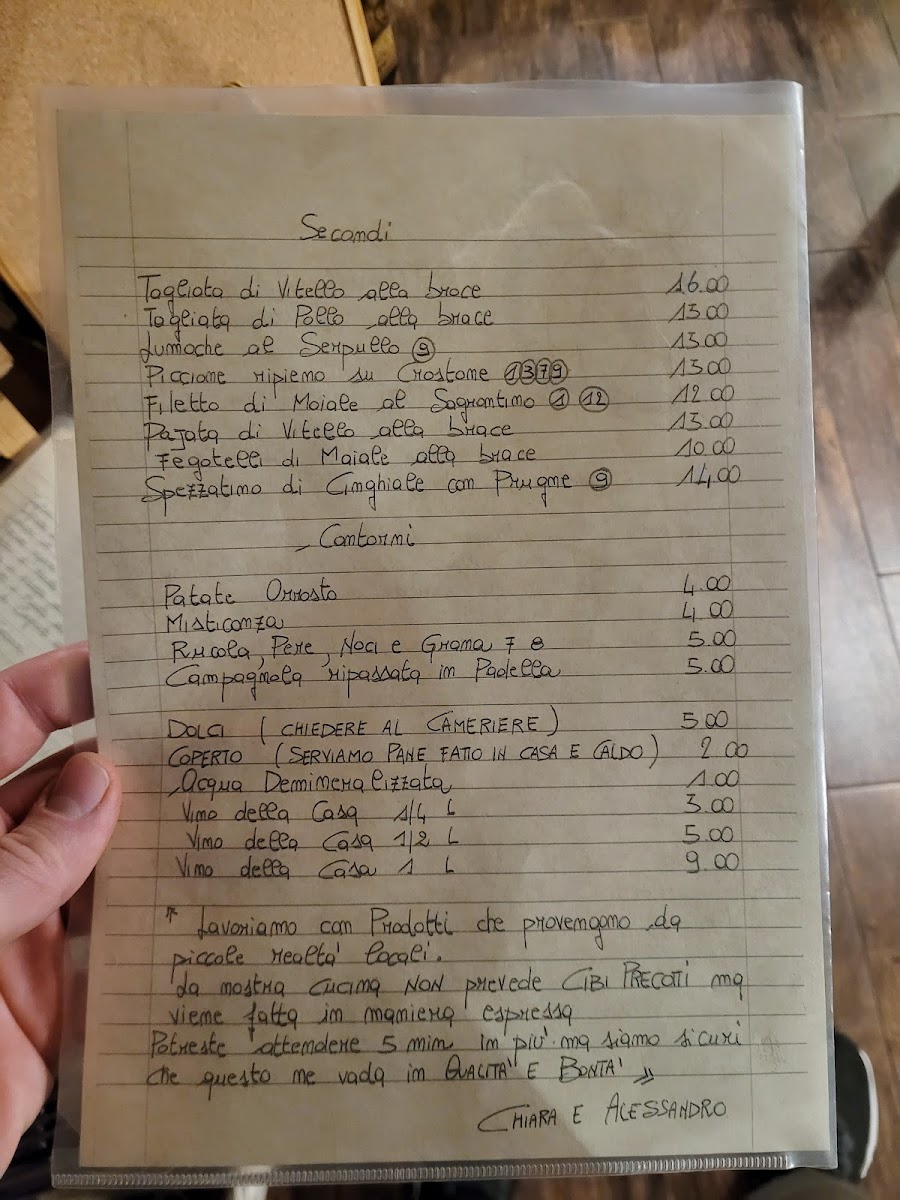 Secondi
Tagliata di Vitello alla brace 16.00
Tagliata di Pollo alla brace 13.00
Lumache al Serpullo 9 13.00
Piccione ripieno su Crostone 1 3 7 9 13.00
Filetto di Maiale al Sagrantino 1 12 12.00
Pajata di Vitello alla brace 13.00
Fegatelli di Maiale alla brace 10.00
Spezzatino di Cinghiale con Prugne 9 14,00
Contorni
Patate Arrosto 4.00
Misticanza 4.00
Rucola, Pere, Noci e Grana 7 8 5.00
Campagnola ripassata in Padella 5.00
DOLCI ( CHIEDERE AL CAMERIERE ) 5.00
COPERTO ( SERVIAMO PANE FATTO IN CASA E CALDO ) 2.00
Acqua Demineralizzata 1.00
Vino della Casa 1/4 L 3.00
Vino della Casa 1/2 L 5.00
Vino della Casa 1 L 9.00
Lavoriamo con Prodotti che provengono da
piccole realta' locali.
La nostra cucina NON prevede CIBI PRECOTTI ma
viene fatta in maniera espressa
Potreste attendere 5 min in piu' ma siamo sicuri
che questo ne vada in QUALITA' E BONTA' "
CHIARA E ALESSANDRO